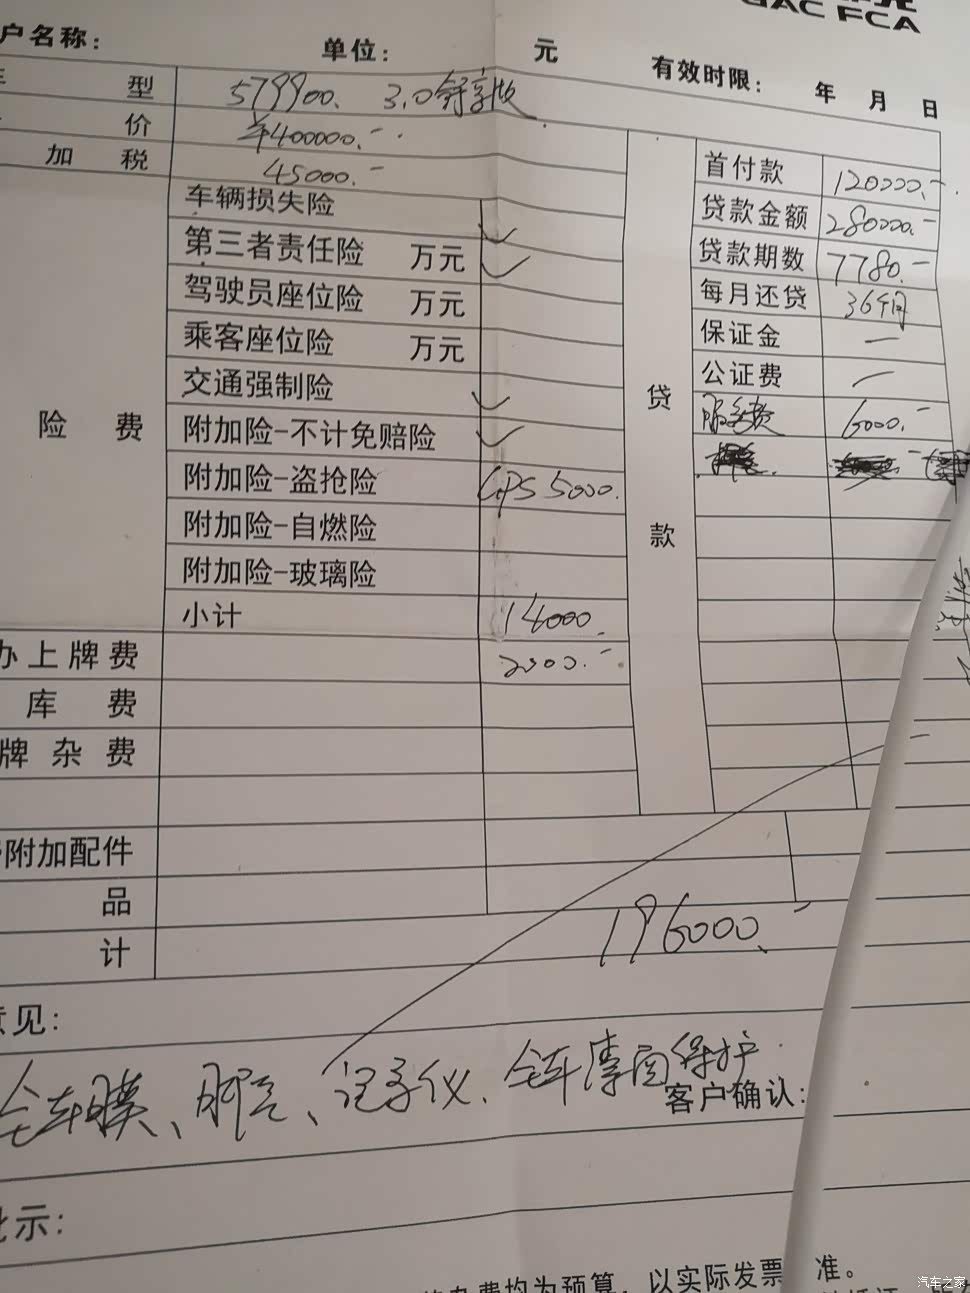 GAC FCA
户名称： 单位： 元 有效时限： 年 月 日
型 579900. 3.0舒享版
价 400000.-
加 税 45000.-
险 费
车辆损失险 ✓
第三者责任险 万元 ✓
驾驶员座位险 万元
乘客座位险 万元
交通强制险 ✓
附加险-不计免赔险 ✓
附加险-盗抢险 GPS 5000.
附加险-自燃险
附加险-玻璃险
小计 14000.
贷 款
首付款 120000.-
贷款金额 280000.-
贷款期数 7780.-
每月还贷 36个月
保证金 —
公证费 —
服务费 6000.-
办上牌费 2000.-
库 费
牌 杂 费
附加配件
品
计 196000.-
意见：
全车膜、脚垫、记录仪、全车漆面保护.
客户确认：
批示：
费均为预算，以实际发票 准。
汽车之家